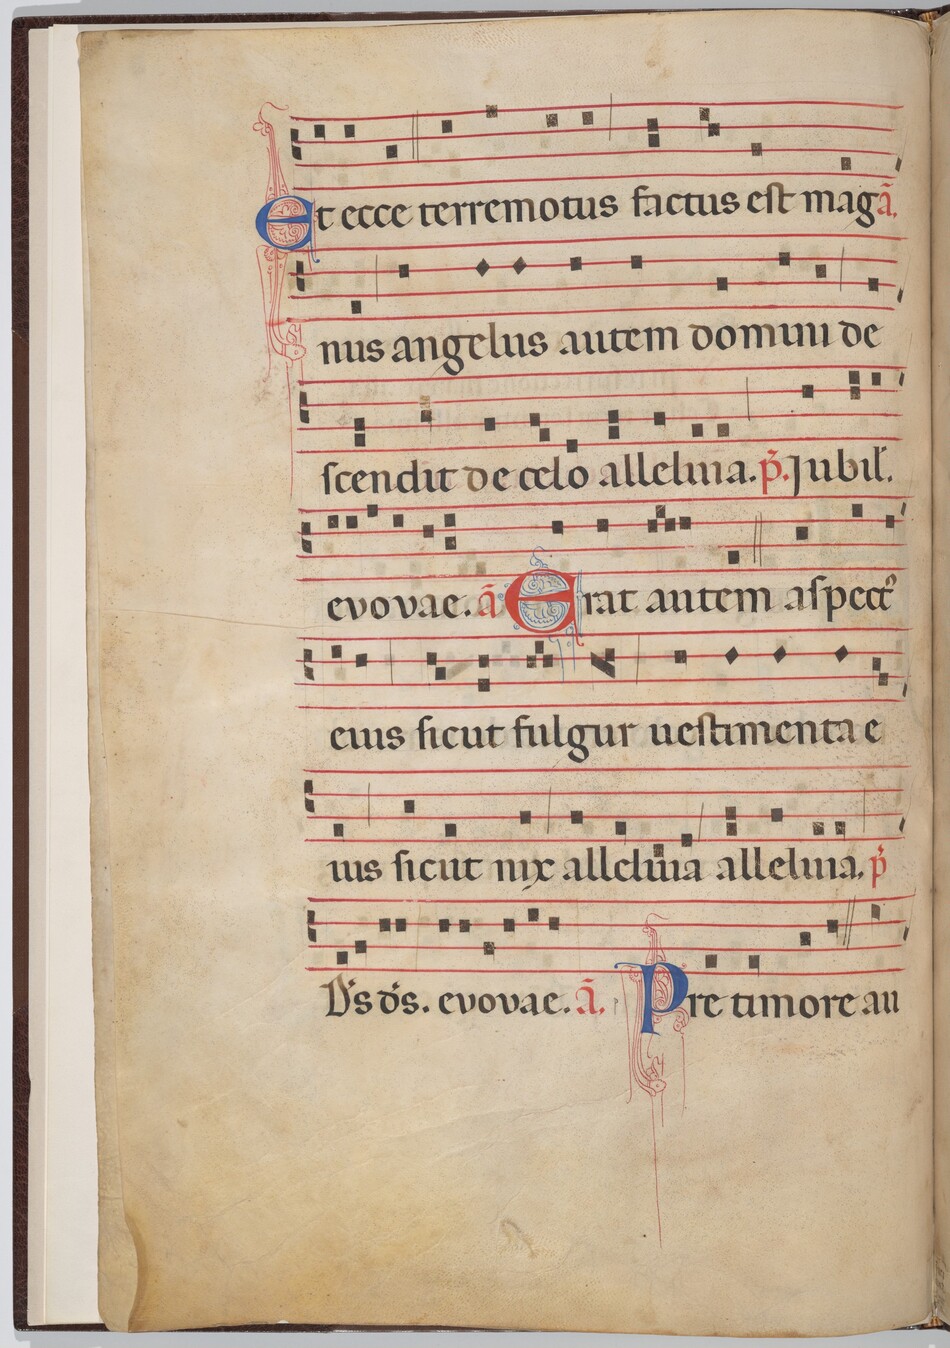 Et ecce terremotus factus est mag ã.
nus angelus autem domini de
scendit de celo alleluia. p̃. Jubil̃.
evovae. ã Erat autem aspectꝰ
eius sicut fulgur uestimenta e
ius sicut nix alleluia alleluia. p̃
D̃s d̃s. evovae. ã. Pre timore au